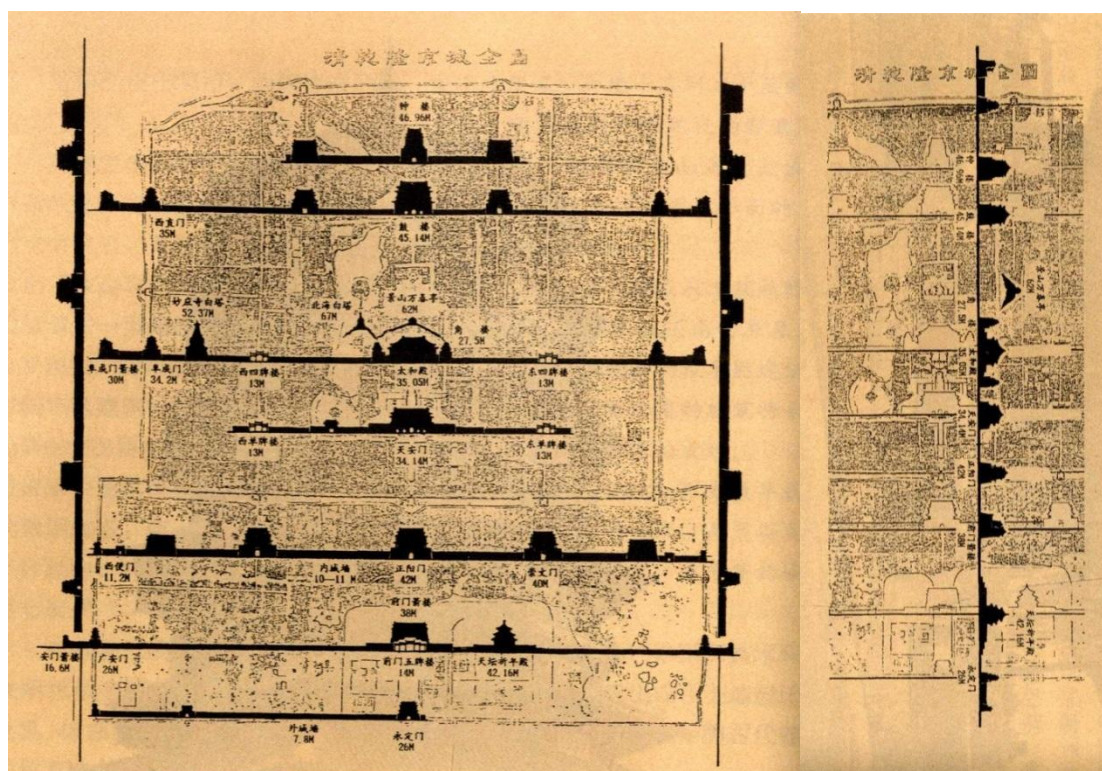 清乾隆京城全图
钟楼
46.96M
西直门
35M
鼓楼
45.14M
妙应寺白塔
52.37M
北海白塔
67M
景山万春亭
62M
角楼
27.5M
阜成门箭楼
30M
阜成门
34.2M
西四牌楼
13M
太和殿
35.05M
东四牌楼
13M
西单牌楼
13M
天安门
34.14M
东单牌楼
13M
西便门
11.2M
内城墙
10—11 M
正阳门
42M
崇文门
40M
前门箭楼
38M
安门箭楼
16.6M
广安门
26M
前门五牌楼
14M
天坛祈年殿
42.16M
外城墙
7.8M
永定门
26M
清乾隆京城全图
钟楼
46.96M
鼓楼
45.14M
景山万春亭
62M
角楼
27.5M
太和殿
35.05M
天安门
34.14M
正阳门
42M
前门箭楼
38M
天坛祈年殿
42.16M
永定门
26M